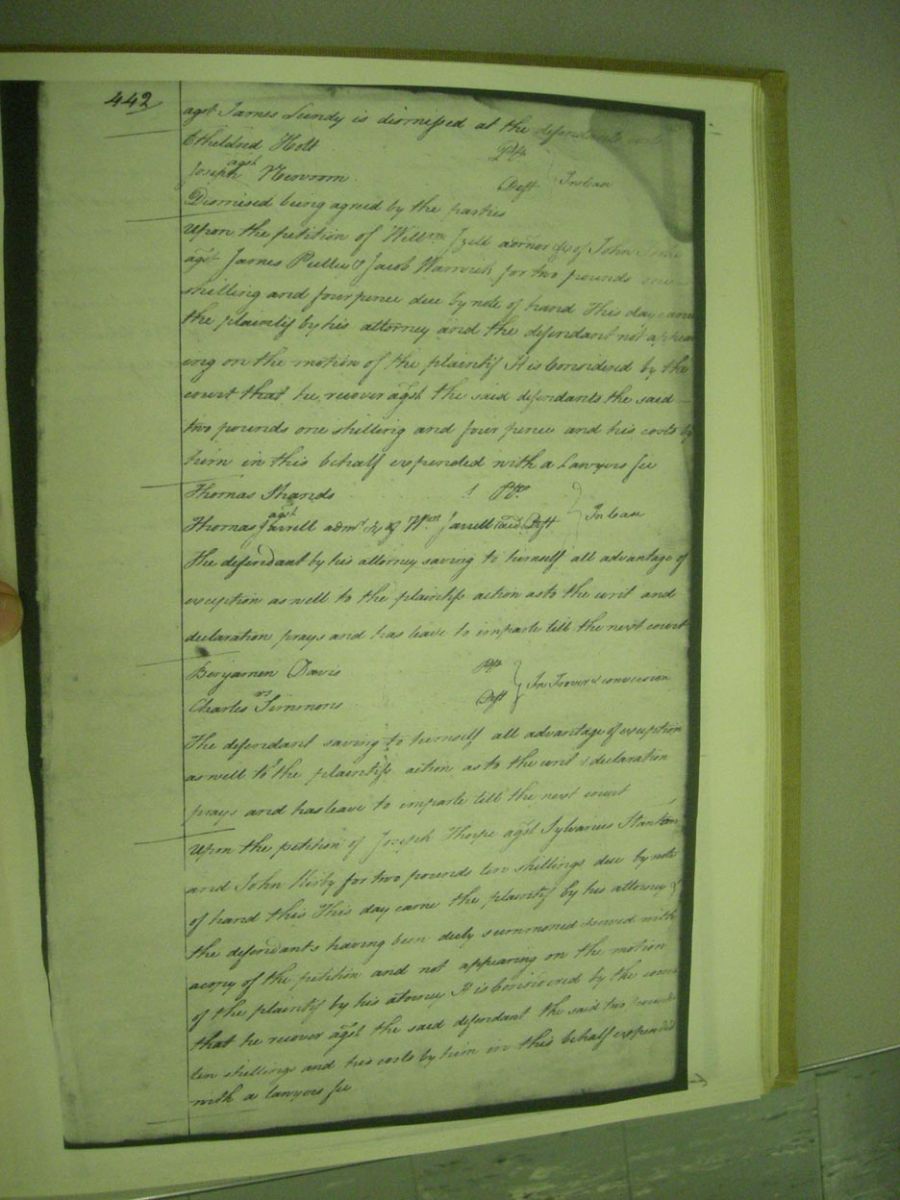 442
agst James Lundy is dismissed at the defendants
Etheldred Holt Plt
agst
Joseph Newsom Deft In Case
Dismissed being agreed by the parties
Upon the petition of Willm Izell of John
agst James Pully & Jacob Warwick for two pounds one
shilling and four pence due by note of hand This day came
the plaintif by his attorney and the defendant not appear
ing on the motion of the plaintif It is Considered by the
court that he recover agst the said defendants the said
two pounds one shilling and four pence and his costs by
him in this behalf expended with a Lawyers fee
Thomas Shands Plt
agst
Thomas Jarrell admr &c of Wm Jarrell Deft In Case
The defendant by his attorney saving to himself all advantage of
exception as well to the plaintifs action as to the writ and
declaration prays and has leave to imparle till the next court
Benjamin Davis Plt
vs
Charles Simmons Deft In Trover & conversion
The defendant saving to himself all advantage of exception
as well to the plaintifs action as to the writ & declaration
prays and has leave to imparle till the next court
Upon the petition of Joseph Thorpe agst Sylvanus Stanton
and John Kirby for two pounds ten shillings due by note
of hand this This day came the plaintif by his attorney &
the defendants having been duly summoned & served with
a copy of the petition and not appearing on the motion
of the plaintif by his attorney It is Considered by the court
that he recover agst the said defendant the said two pounds
ten shillings and his costs by him in this behalf expended
with a lawyers fee